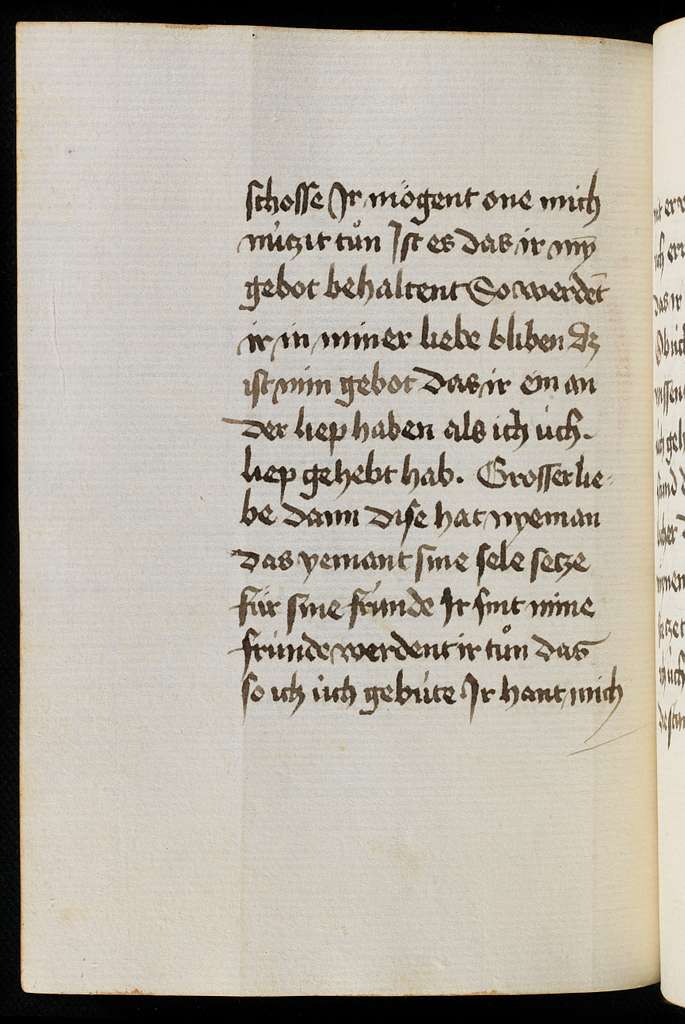 schosse Ir mögent one mich
nützit tůn Ist es das ir my̅
gebot behaltent So werdēt
ir in miner liebe bliben dz
ist min gebot das ir ein an
der liep haben als ich üch.
liep gehebt hab. Grosser lie-
be dann dise hat nyeman
das yemant sine sele setze
für sine fründe Ir sint mine
fründe werdent ir tůn das
so ich üch gebüte Ir hant mich